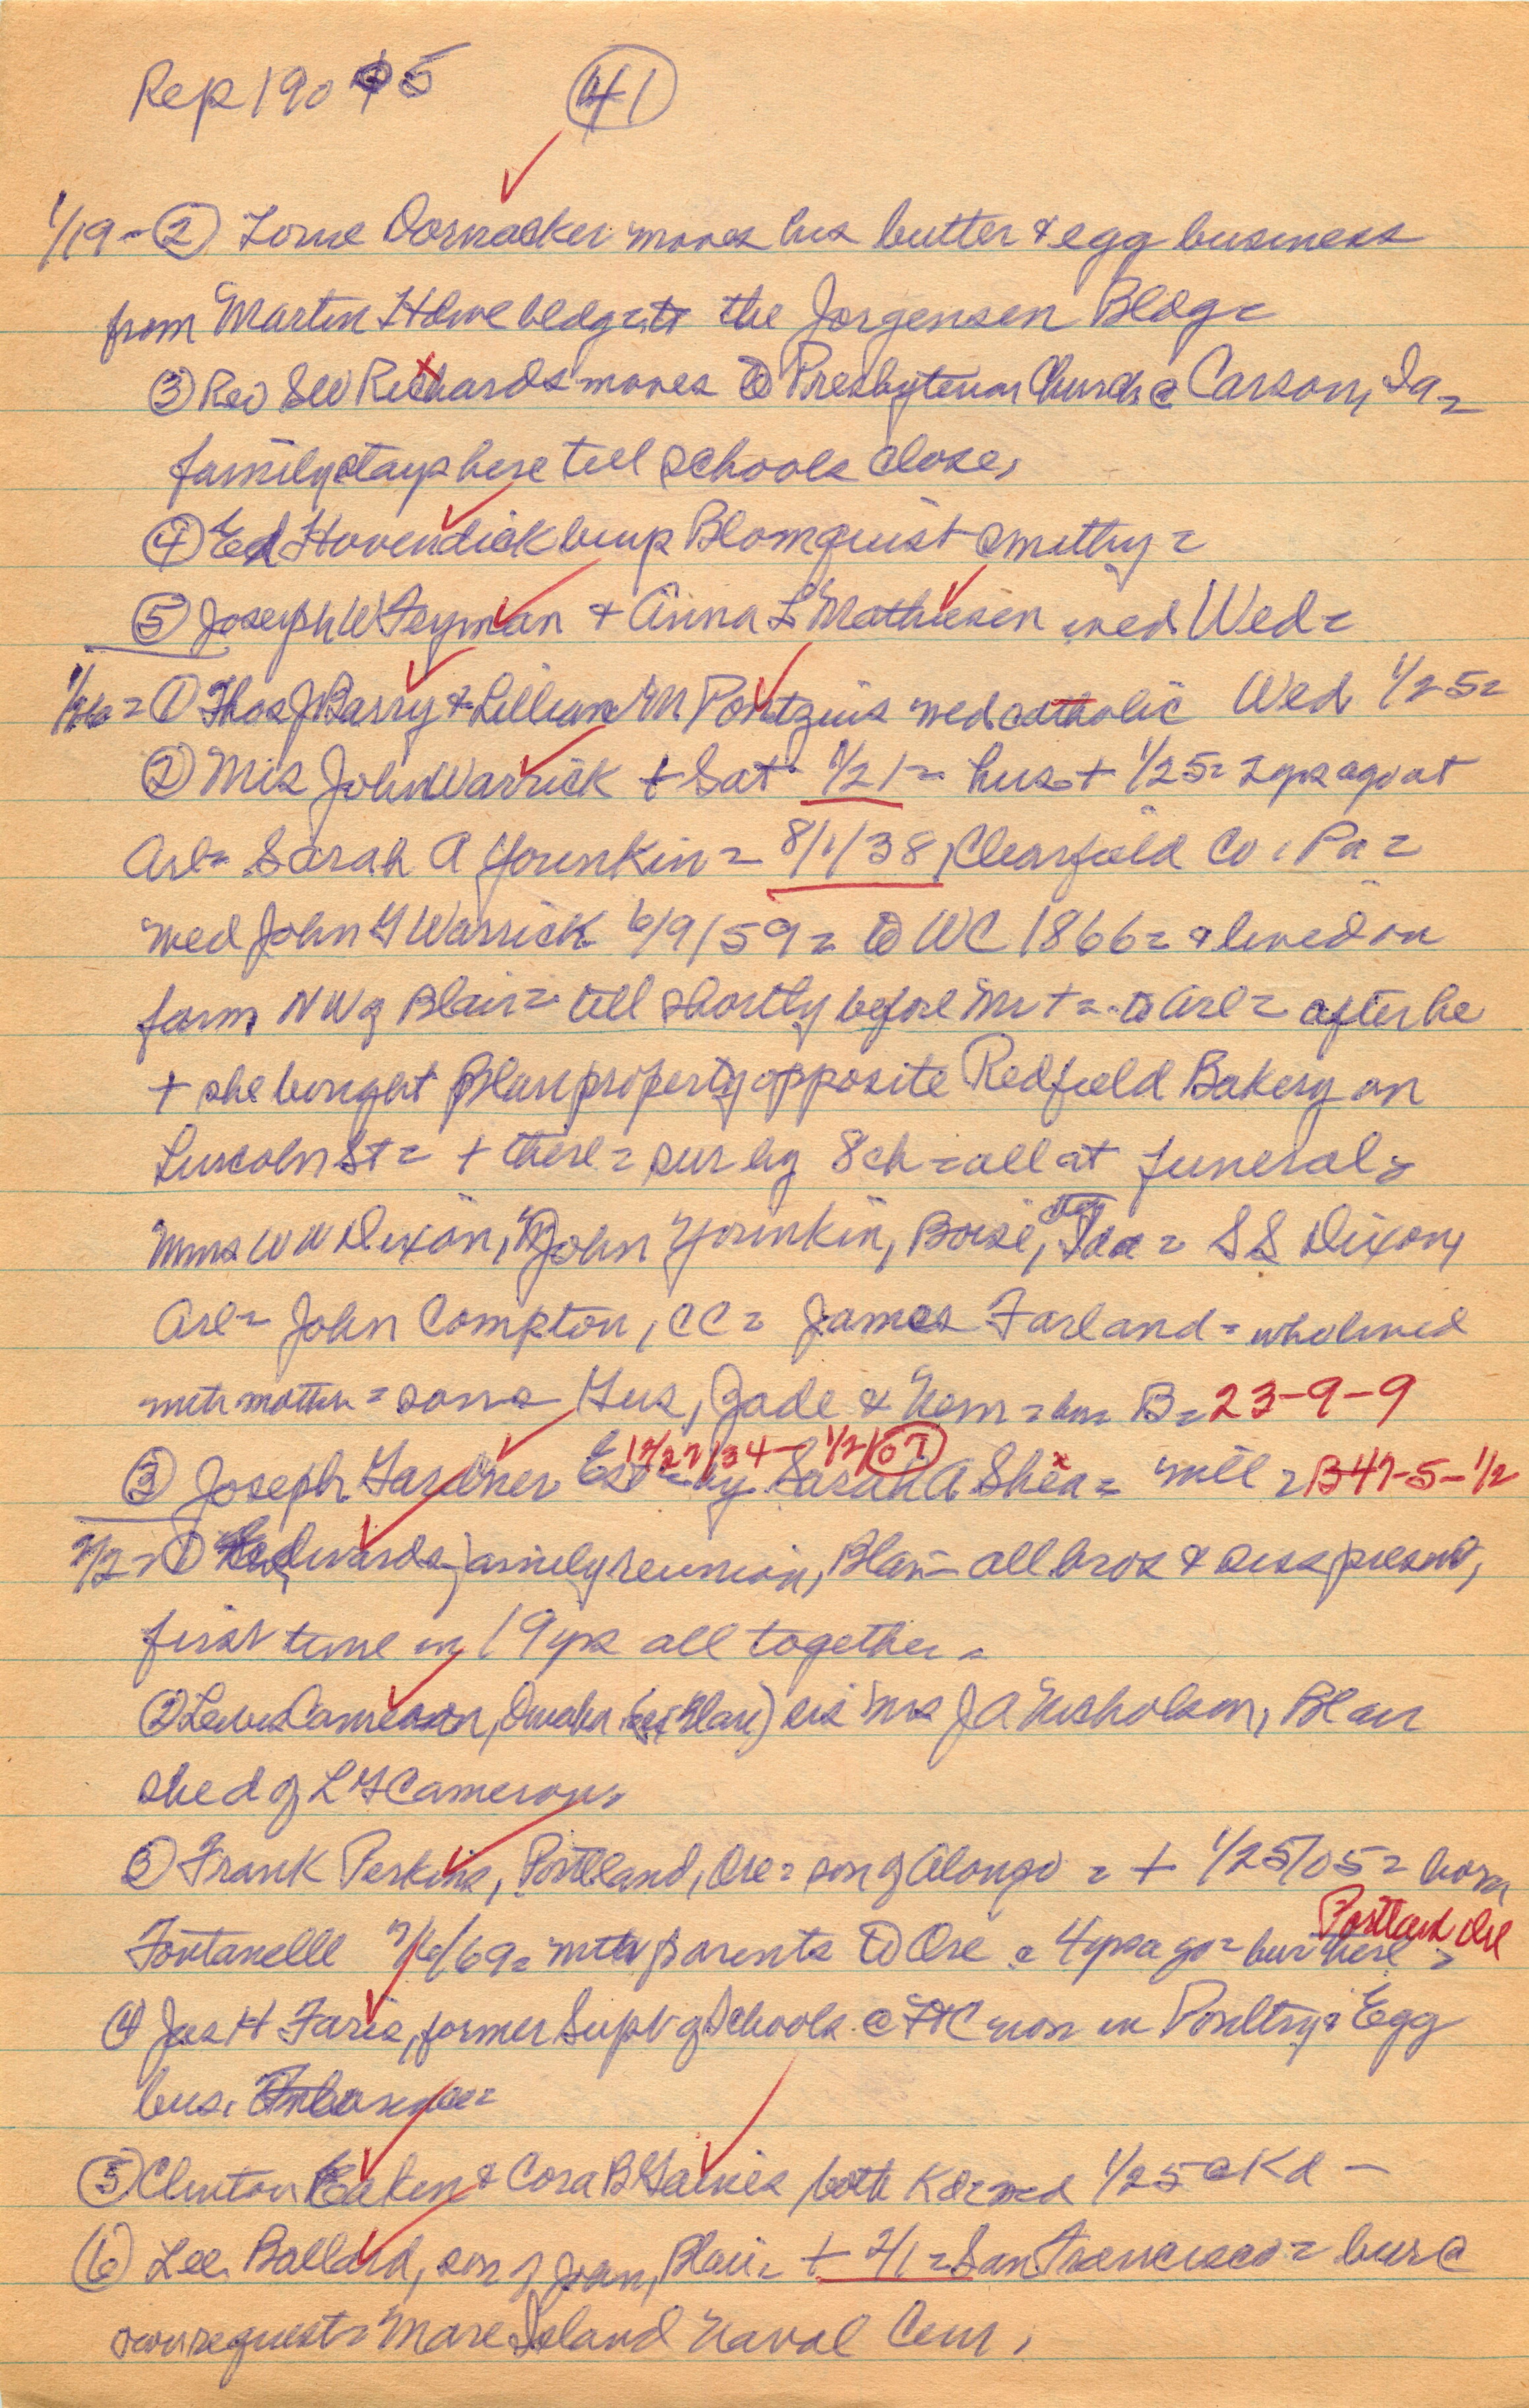 Rep 1905 41
1/19 - ② Dornacker moves his butter & egg business
from Martin bldg to the Jorgensen Bldg =
③ Rev SW Richards moves to Presbyterian Church @ Carson, Ia =
family stays here till schools close,
④ Ed Hovendick buys Blomquist smithy =
⑤ Joseph W Feyman & Anna L Mathiesen wed Wed =
1/26 = ① Thos J Barry & Lillian M Pontzius wed catholic Wed 1/25 =
② Mrs John Warrick + Sat 1/21 = hus + 1/25 = 2 yrs ago at
Arl = Sarah A Younkin = 8/1/38, Clearfield Co, Pa =
wed John G Warrick 6/9/59 = to WC 1866 = & lived on
farm NW of Blair = till shortly before Mr + = to Arl = after he
+ she bought Blair property opposite Redfield Bakery on
Lincoln St = + there = sur by 8 ch = all at funeral =
Mmes W W Dixon, John Younkin, Boise, Ida = S S Dixon,
Arl = John Compton, CC = James Farland = who lived
with mother = sons Gus, Zade & Nem = bur B = 23-9-9
12/27/34 - 1/2/07
③ Joseph Gardner Est = by Sarah A Shea = will = B47-5-1/2
2/2 = ① Edwards family reunion, Blair = all bros & sess present,
first time in 19 yrs all together =
② Lewis Cameron, Omaha Blair) sis Mrs J A Nicholson, Blair
she d of L G Cameron,
③ Frank Perkins, Portland, Ore = son of Alonzo = + 1/25/05 = born
Portland Ore
Fontanelle 7/6/69 = with parents to Ore @ 4 yrs ago = bur there =
④ Jas H Faris, former Supt of Schools @ FtC now in Poultry & Egg
bus.
⑤ Clinton Eaken & Cora B Gaines both Kd = wed 1/25 @ Kd -
⑥ Lee Ballard, son of Joan, Blair = + 2/1 = San Francisco = bur @
own request = Mare Island Naval Cem,